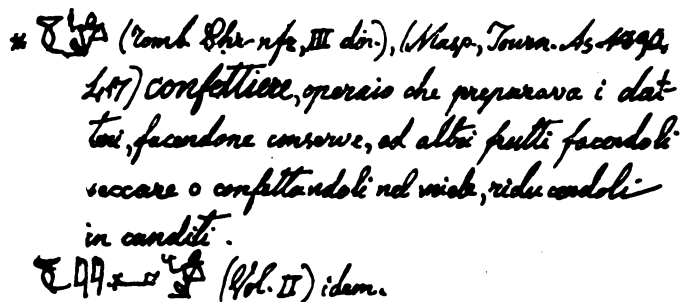 * (Tomb. Chr-nfr, III din.), (Masp., Journ. As. 1890,
417) confettiere, operaio che preparava i dat-
teri, facendone conserve, ed altri frutti facendoli
seccare o confettandoli nel miele, riducendoli
in canditi.
(Vol. II) idem.